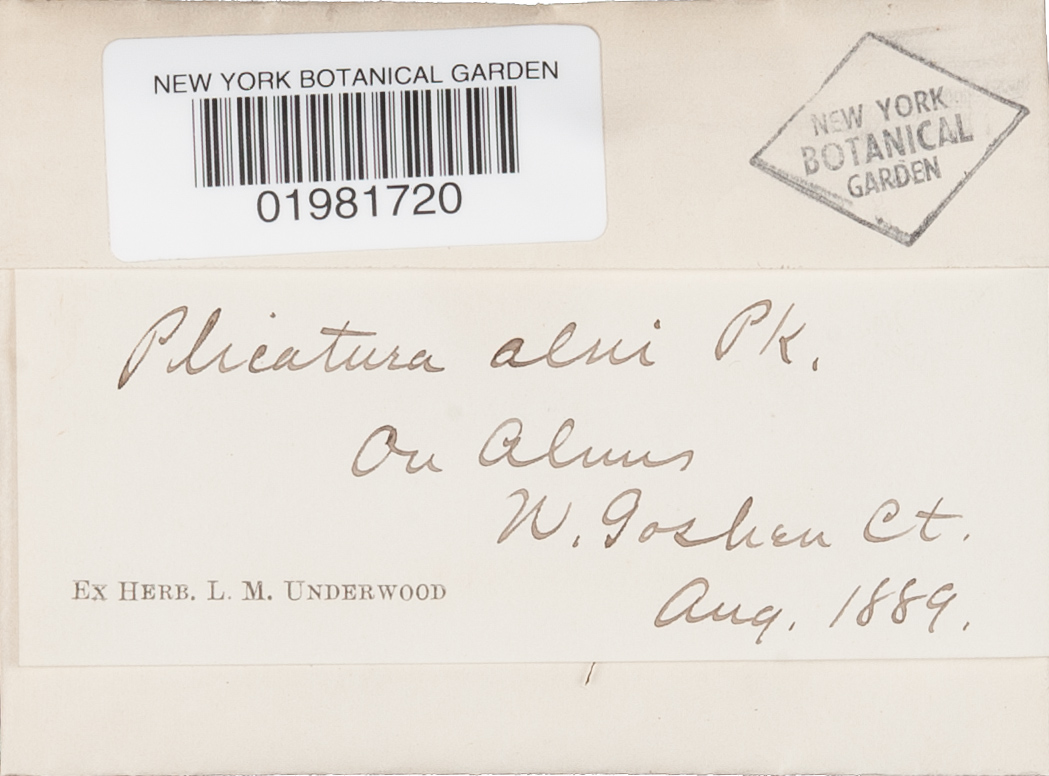 NEW YORK BOTANICAL GARDEN
01981720
NEW YORK
BOTANICAL
GARDEN
Plicatura alni Pk.
On Alnus
W. Goshen Ct.
Aug. 1889.
EX HERB. L. M. UNDERWOOD